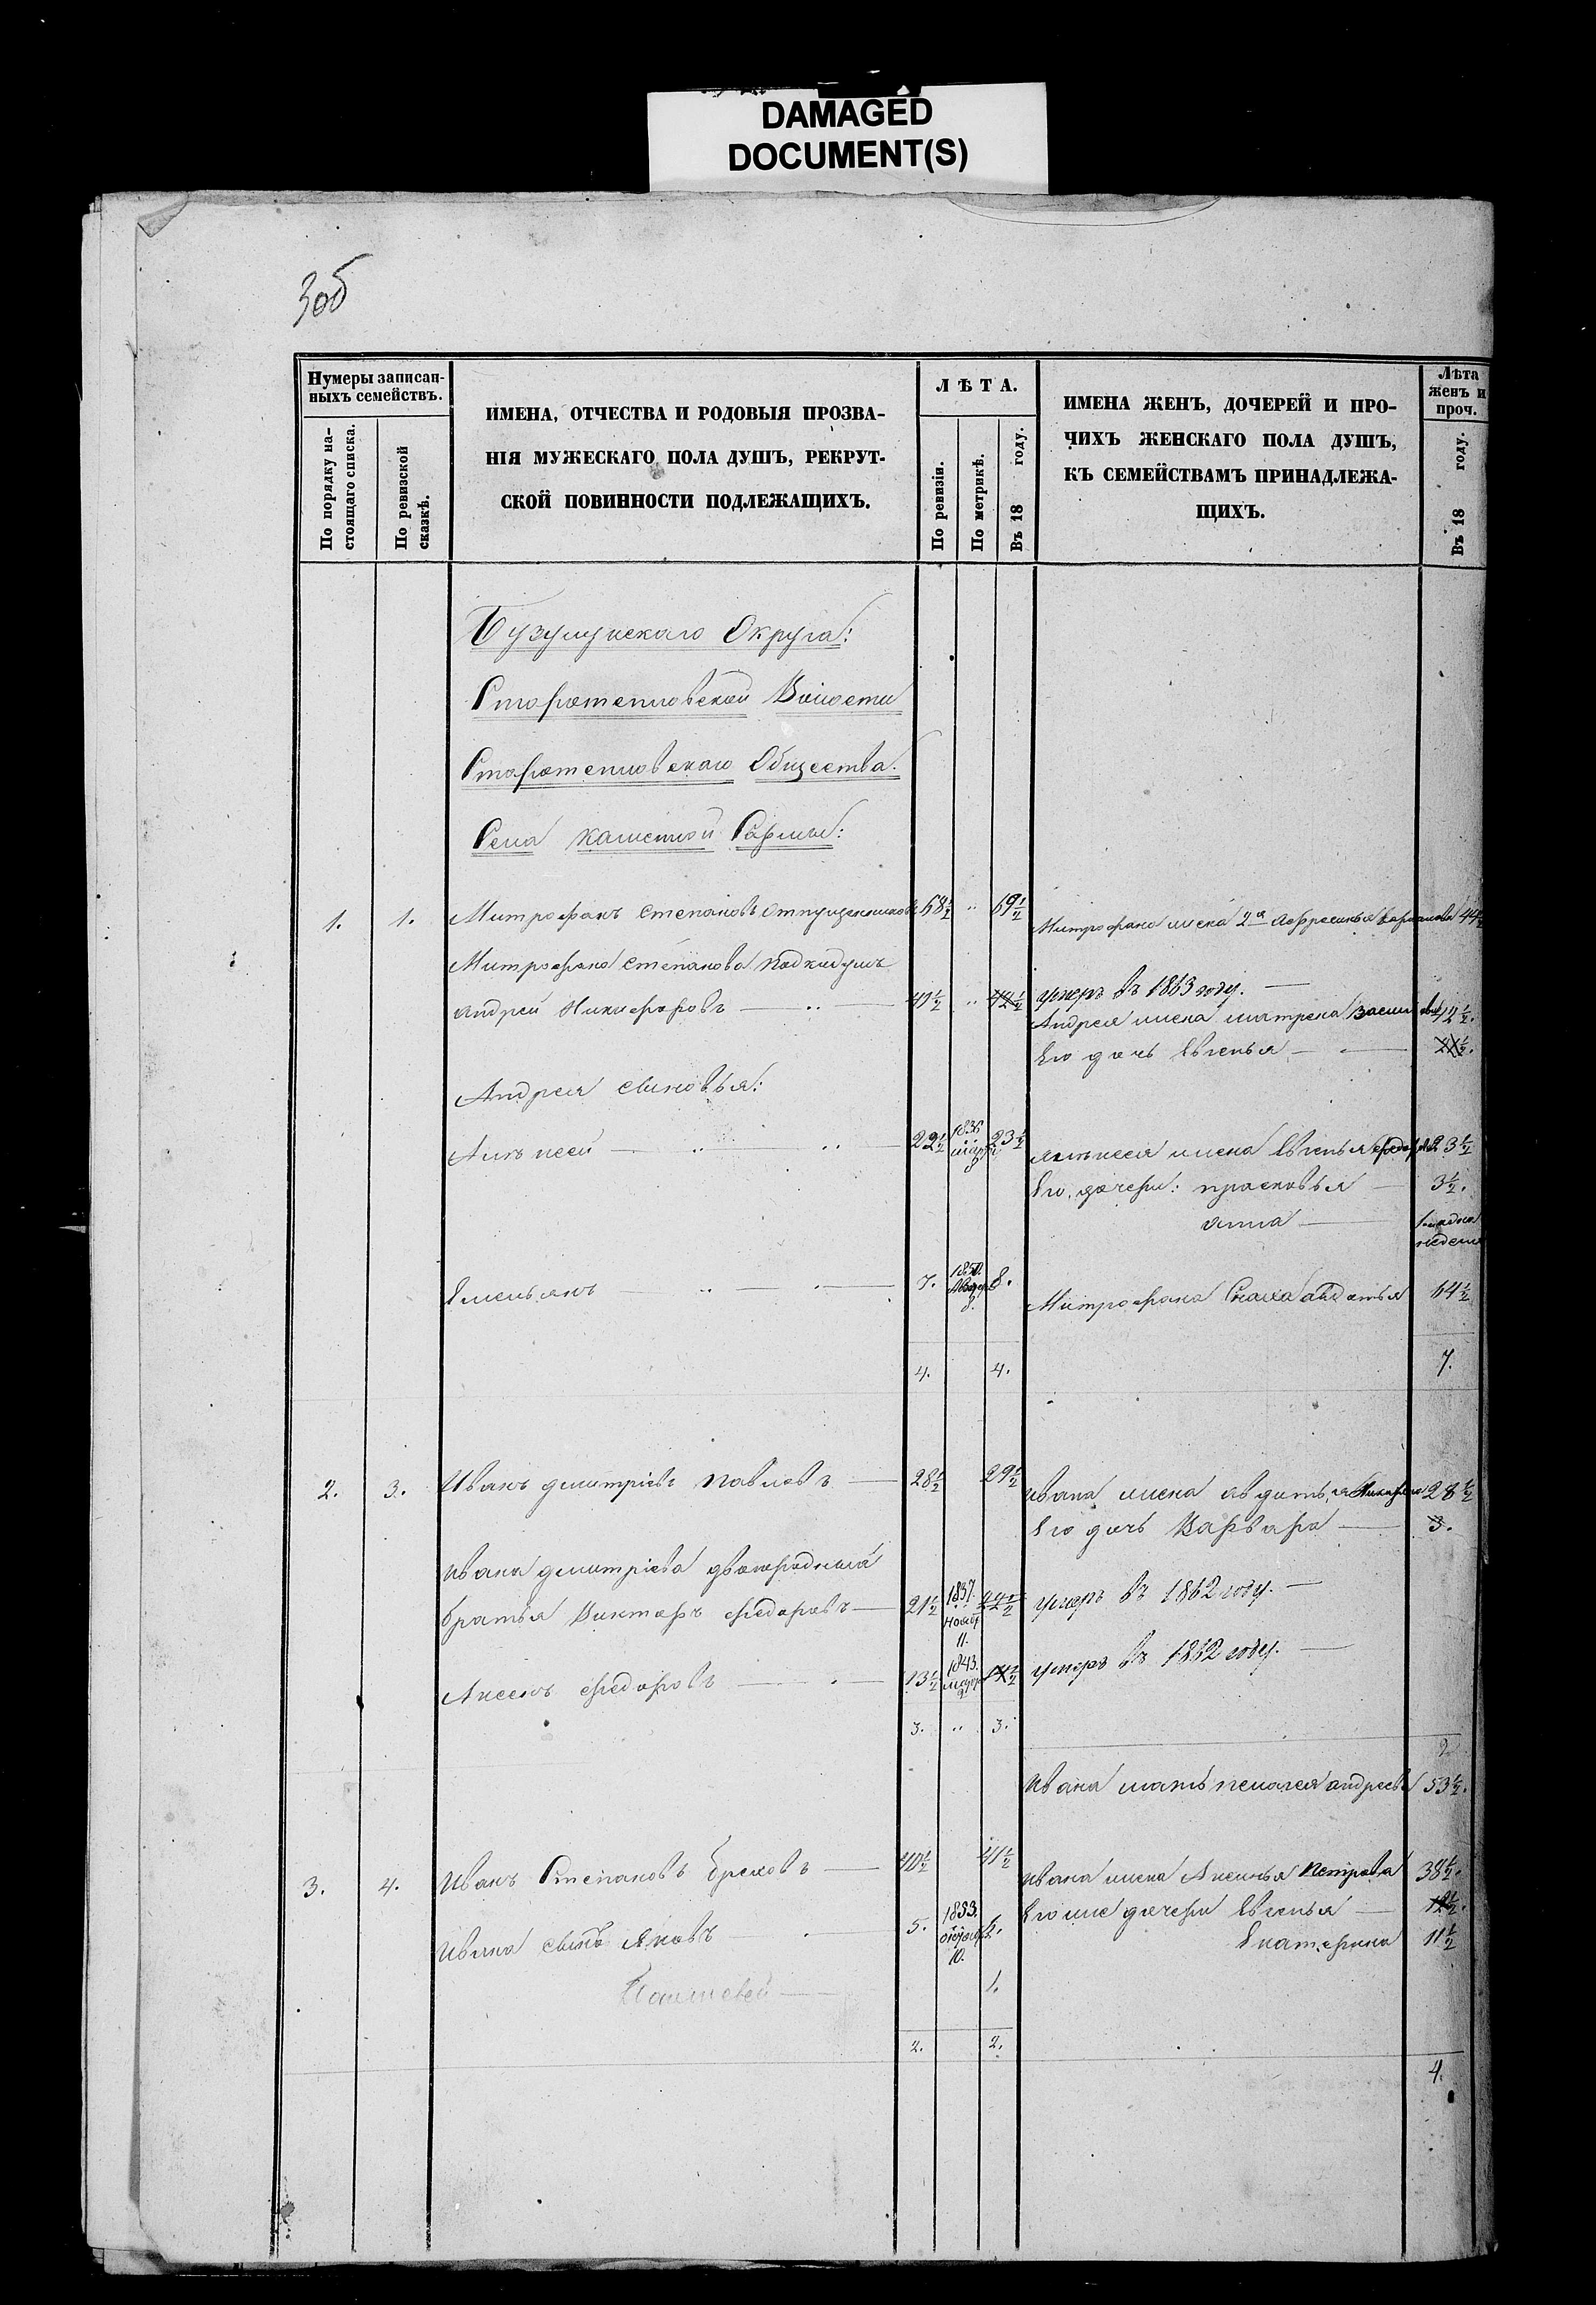 DAMAGED
DOCUMENT(S)
306
Нумеры записан-
ныхъ семействъ.
По порядку на-
стоящаго списка.
По ревизской
сказкѣ.
ИМЕНА, ОТЧЕСТВА И РОДОВЫЯ ПРОЗВА-
НІЯ МУЖЕСКАГО ПОЛА ДУШЪ, РЕКРУТ-
СКОЙ ПОВИННОСТИ ПОДЛЕЖАЩИХЪ.
ЛѢТА.
По ревизіи.
По метрикѣ.
Въ 18 году.
ИМЕНА ЖЕНЪ, ДОЧЕРЕЙ И ПРО-
ЧИХЪ ЖЕНСКАГО ПОЛА ДУШЪ,
КЪ СЕМЕЙСТВАМЪ ПРИНАДЛЕЖА-
ЩИХЪ.
Лѣта
женъ и
проч.
Въ 18 году.
Бузулукскаго Округа:
Старотепловской Волости
Старотепловскаго Общества.
Села Каменной Сармы:
1. 1. Митрофанъ Степановъ Отпущенниковъ 68½ " 69½ Митрофана жена 2я 44½
Митрофана Степанова подкидышъ
Андрей Никифоровъ 41½ " 42½ умеръ въ 1863 году.
Андрея жена Матрена 42½.
Его дочь Евгенья
Андрея сыновья:
Алексей 22½ 1836 8 23½ Алексея жена Евгенья 23½
Его дочери: Прасковья 3½.
Анна
недели
Емельянъ 7. 8. 8. Митрофана Сноха Авдотья 64½
4. 4. 7.
2. 3. Иванъ Дмитріевъ Павловъ 28½ 29½ Ивана жена Авдотья 28½
Его дочь Варвара 3.
Ивана Дмитріева двоюродныя
братья Викторъ Федоровъ 21½ 1837. Нояб 11. 22½ умеръ въ 1862 году.
Аксенъ Федоровъ 13½ 1843. 14½ умеръ въ 1862 году.
3. " 3. 2
Ивана мать Пелагея Андреева 53½.
3. 4. Иванъ Степановъ Бреховъ 40½ 41½ Ивана жена Аксинья Петрова 38½.
Ивана сынъ Яковъ 5. 1853. 10. 6. Его же дочери Евгенья 12½.
Екатерина 11½
1.
2. 2. 4.